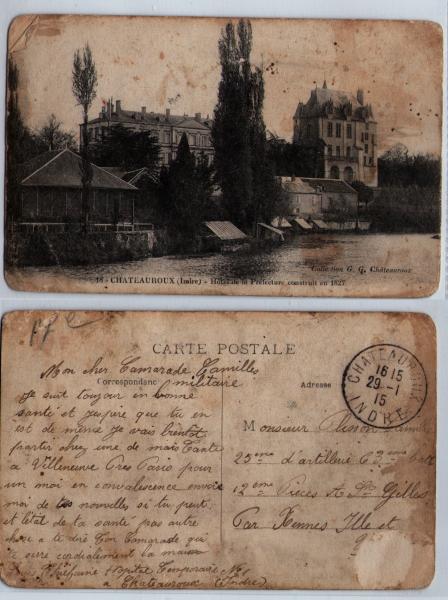 18 - CHATEAUROUX (Indre) - Hôtel de la Préfecture construit en 1827
Collection G. G. Châteauroux
CARTE POSTALE
Correspondance
Adresse
CHATEAUROUX
16 15
29 - 1
15
INDRE
Mon cher Camarade Camilles
militaire
Je suit toujour en bonne
santé et j'espère que tu en
est de même Je vais bientot
partir chez une de mais Tante
a Villeneuve Pres Paris pour
un moi en convalescence envoie
moi de tes nouvelles si tu peut
et l'état de la santé pas autre
chose a te dire Ton Camarade qui
te serre cordialement la main
Hopital Temporaire N° 1
a Chateauroux (Indre)
Monsieur
25ème d'artilleri
12ème Pieces A St Gilles
Par Rennes Ille et